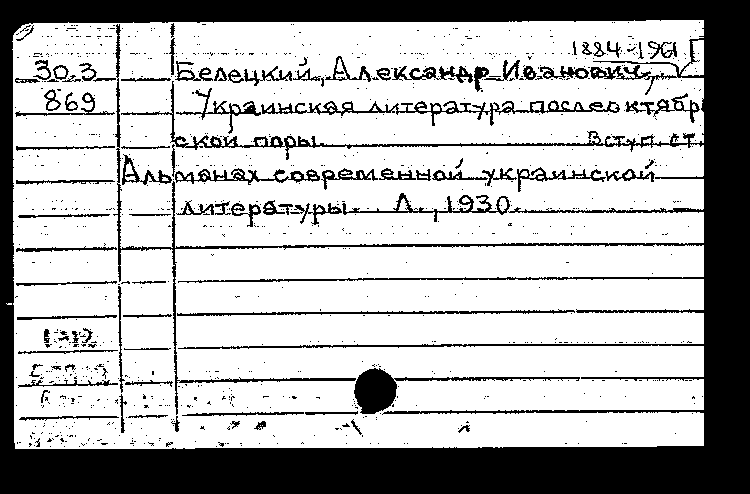 1884-1961
30.3 Белецкий, Александр Иванович,
869 Украинская литература послеоктябрь
ской поры. Вступ. ст.
Альманах современной украинской
литературы. Л., 1930.